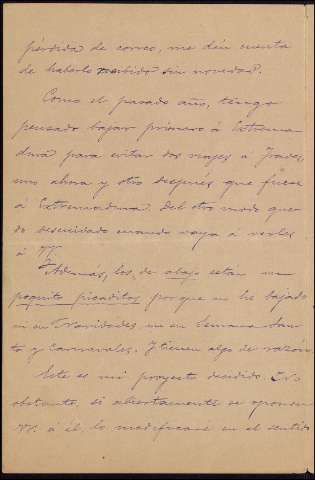 pérdida de correo, me dén cuenta
de haberlo recibido sin novedad.
Como el pasado año, tengo
pensado bajar primero á Extrema
dura para evitar dos viajes á Frades,
uno ahora y otro después que fuese
á Extremadura. Del otro modo que
do descuidado cuando vaya á verles
á VV.
Además, los de abajo están un
poquito picaditos porque no he bajado
ni en Navidades, ni en Semana San
ta y Carnavales. Y tienen algo de razón.
Este es mi proyecto decidido. No
obstante, si abiertamente se oponen
VV. á él, lo modificaré en el sentido